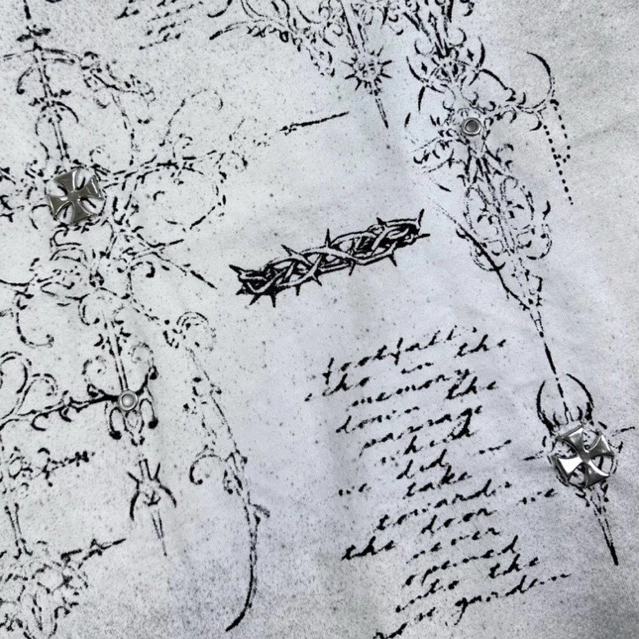 footfalls
echo in the
memory
down the
passage
which
we did no
take
towards
the door we
never
opened
into the
rose garden